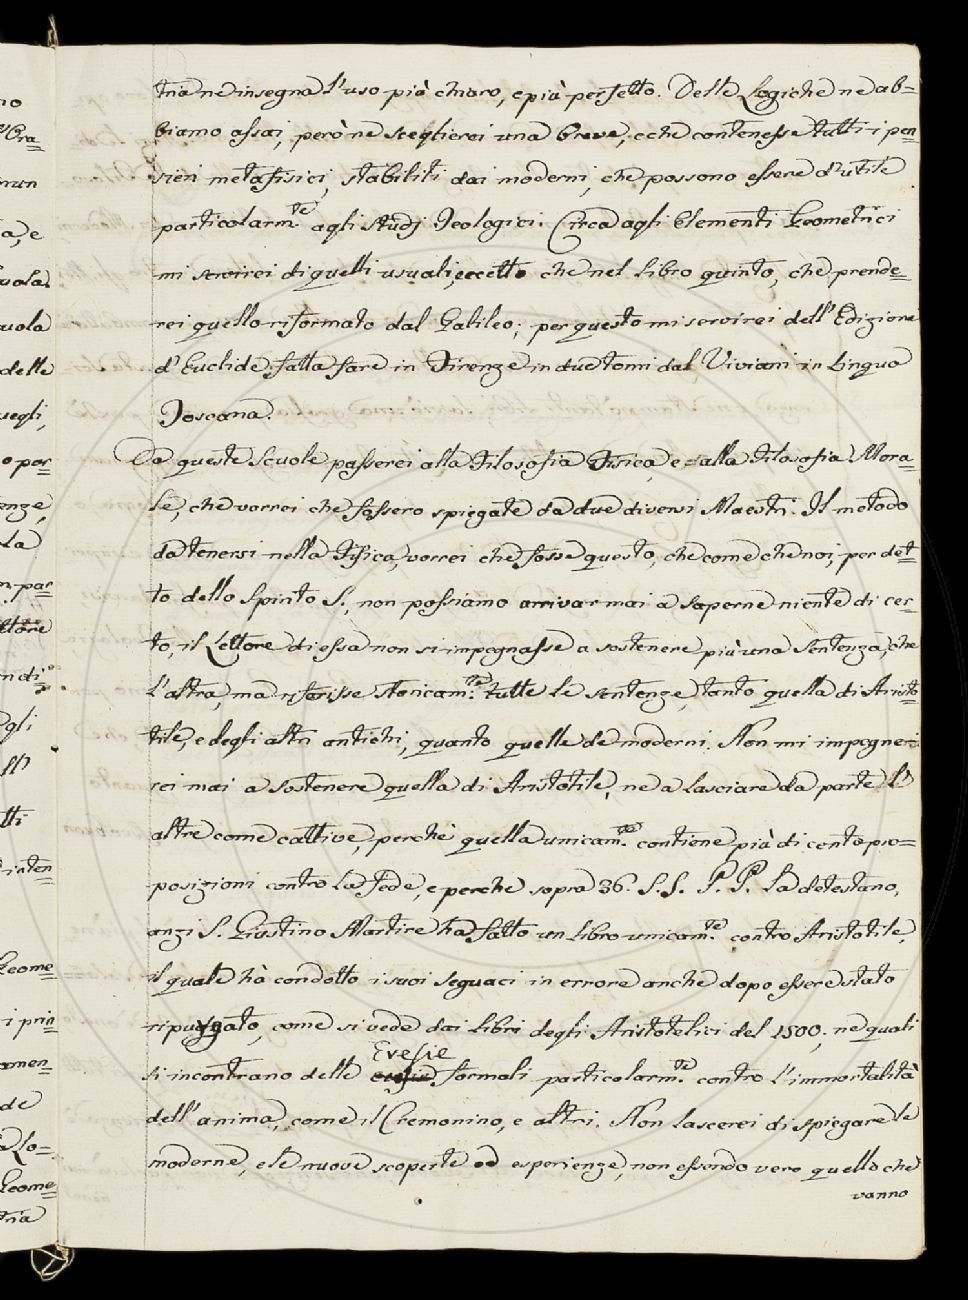 tria ne insegna l'uso più chiaro, e più perfetto. Delle Logiche ne ab=
biamo assai, però ne sceglierei una breve, e che contenesse tutti i pen=
sieri metafisici, stabiliti dai moderni, che possono essere d'utile
particolarm.te agli studj Teologici. Circa agli Elementi Geometrici
mi servirei di quelli usuali, eccetto che nel libro quinto, che prende=
rei quello riformato dal Galileo; per questo mi servirei dell'Edizione
d'Euclide fatta fare in Firenze in due tomi dal Viviani in lingua
Toscana.
Da queste scuole passerei alla Filosofia Fisica, e alla Filosofia Mora=
le, che vorrei che fossero spiegate da due diversi Maestri. Il metodo
da tenersi nella Fisica, vorrei che fosse questo, che come che noi, per det=
to dello Spirito S., non possiamo arrivar mai a saperne niente di cer=
to, il Lettore di essa non si impegnasse a sostenere più una sentenza, che
l'altra, ma riferisse storicam.te tutte le sentenze, tanto quella di Aristo=
tile, e degli altri antichi, quanto quelle de moderni. Non mi impegne
rei mai a sostenere quella di Aristotile, ne a lasciare da parte l'
altre come cattive, perchè quella unicam.te contiene più di cento pro=
posizioni contro la fede, e perche sopra 36. S.S. P.P. la detestano,
anzi S. Giustino Martire ha fatto un libro unicam.te contro Aristotile,
il quale hà condotto i suoi seguaci in errore anche dopo essere stato
ripurgato, come si vede dai libri degli Aristotelici del 1500, ne quali
si incontrano delle Eresie formali particolarm.te contro l'immortalità
dell'anima, come il Cremonino, e altri. Non lascerei di spiegare le
moderne, e le nuove scoperte ed esperienze, non essendo vero quello che
vanno
no
mun
a, e
uola
delle
segli,
o por=
enze,
La
n par
ttore
n di
gli
tti
inten
Geome=
i prin=
amen=
de
Lo=
Geome=
tria